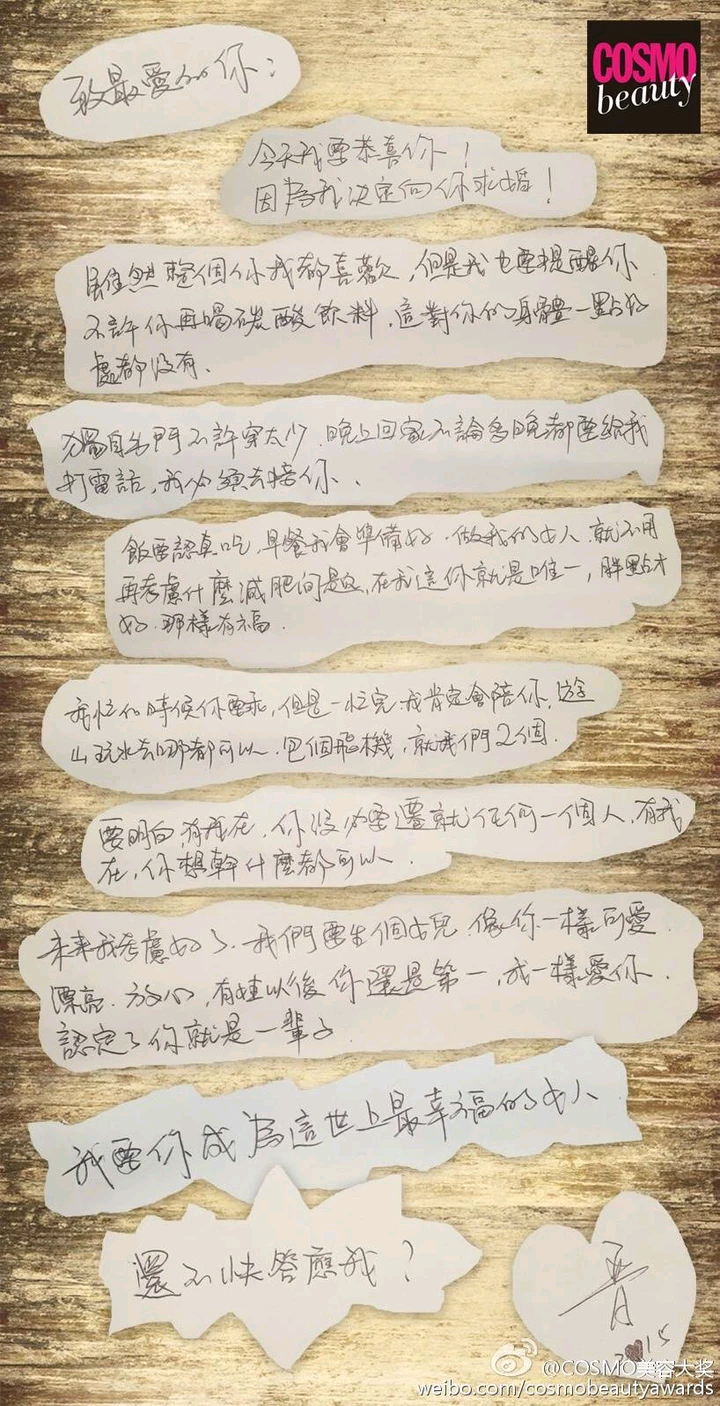 COSMO
beauty
致最愛的你:
今天我要恭喜你!
因為我決定向你求婚!
雖然整個你我都喜歡,但是我也要提醒你
不許你再喝碳酸飲料,這對你的身體一點好
處都沒有.
獨自出門不許穿太少.晚上回家不論多晚都要給我
打電話,我必須去接你.
飯要認真吃,早餐我會準備好.做我的女人.就不用
再考慮什麼減肥问題,在我這你就是唯一,胖點才
好.那樣有福.
我忙的時候你要乖,但是一忙完我肯定會陪你.遊
山玩水去哪都可以.包個飛機,就我們2個.
要明白有我在.你沒必要遷就任何一個人.有我
在,你想幹什麼都可以.
未來我考慮好了.我們要生個女兒.像你一樣可愛
漂亮.放心,有娃以後你還是第一,我一樣愛你.
認定了你就是一輩子.
我要你成為這世上最幸福的女人
還不快答應我?
晋
2015
@COSMO美容大奖
weibo.com/cosmobeautyawards